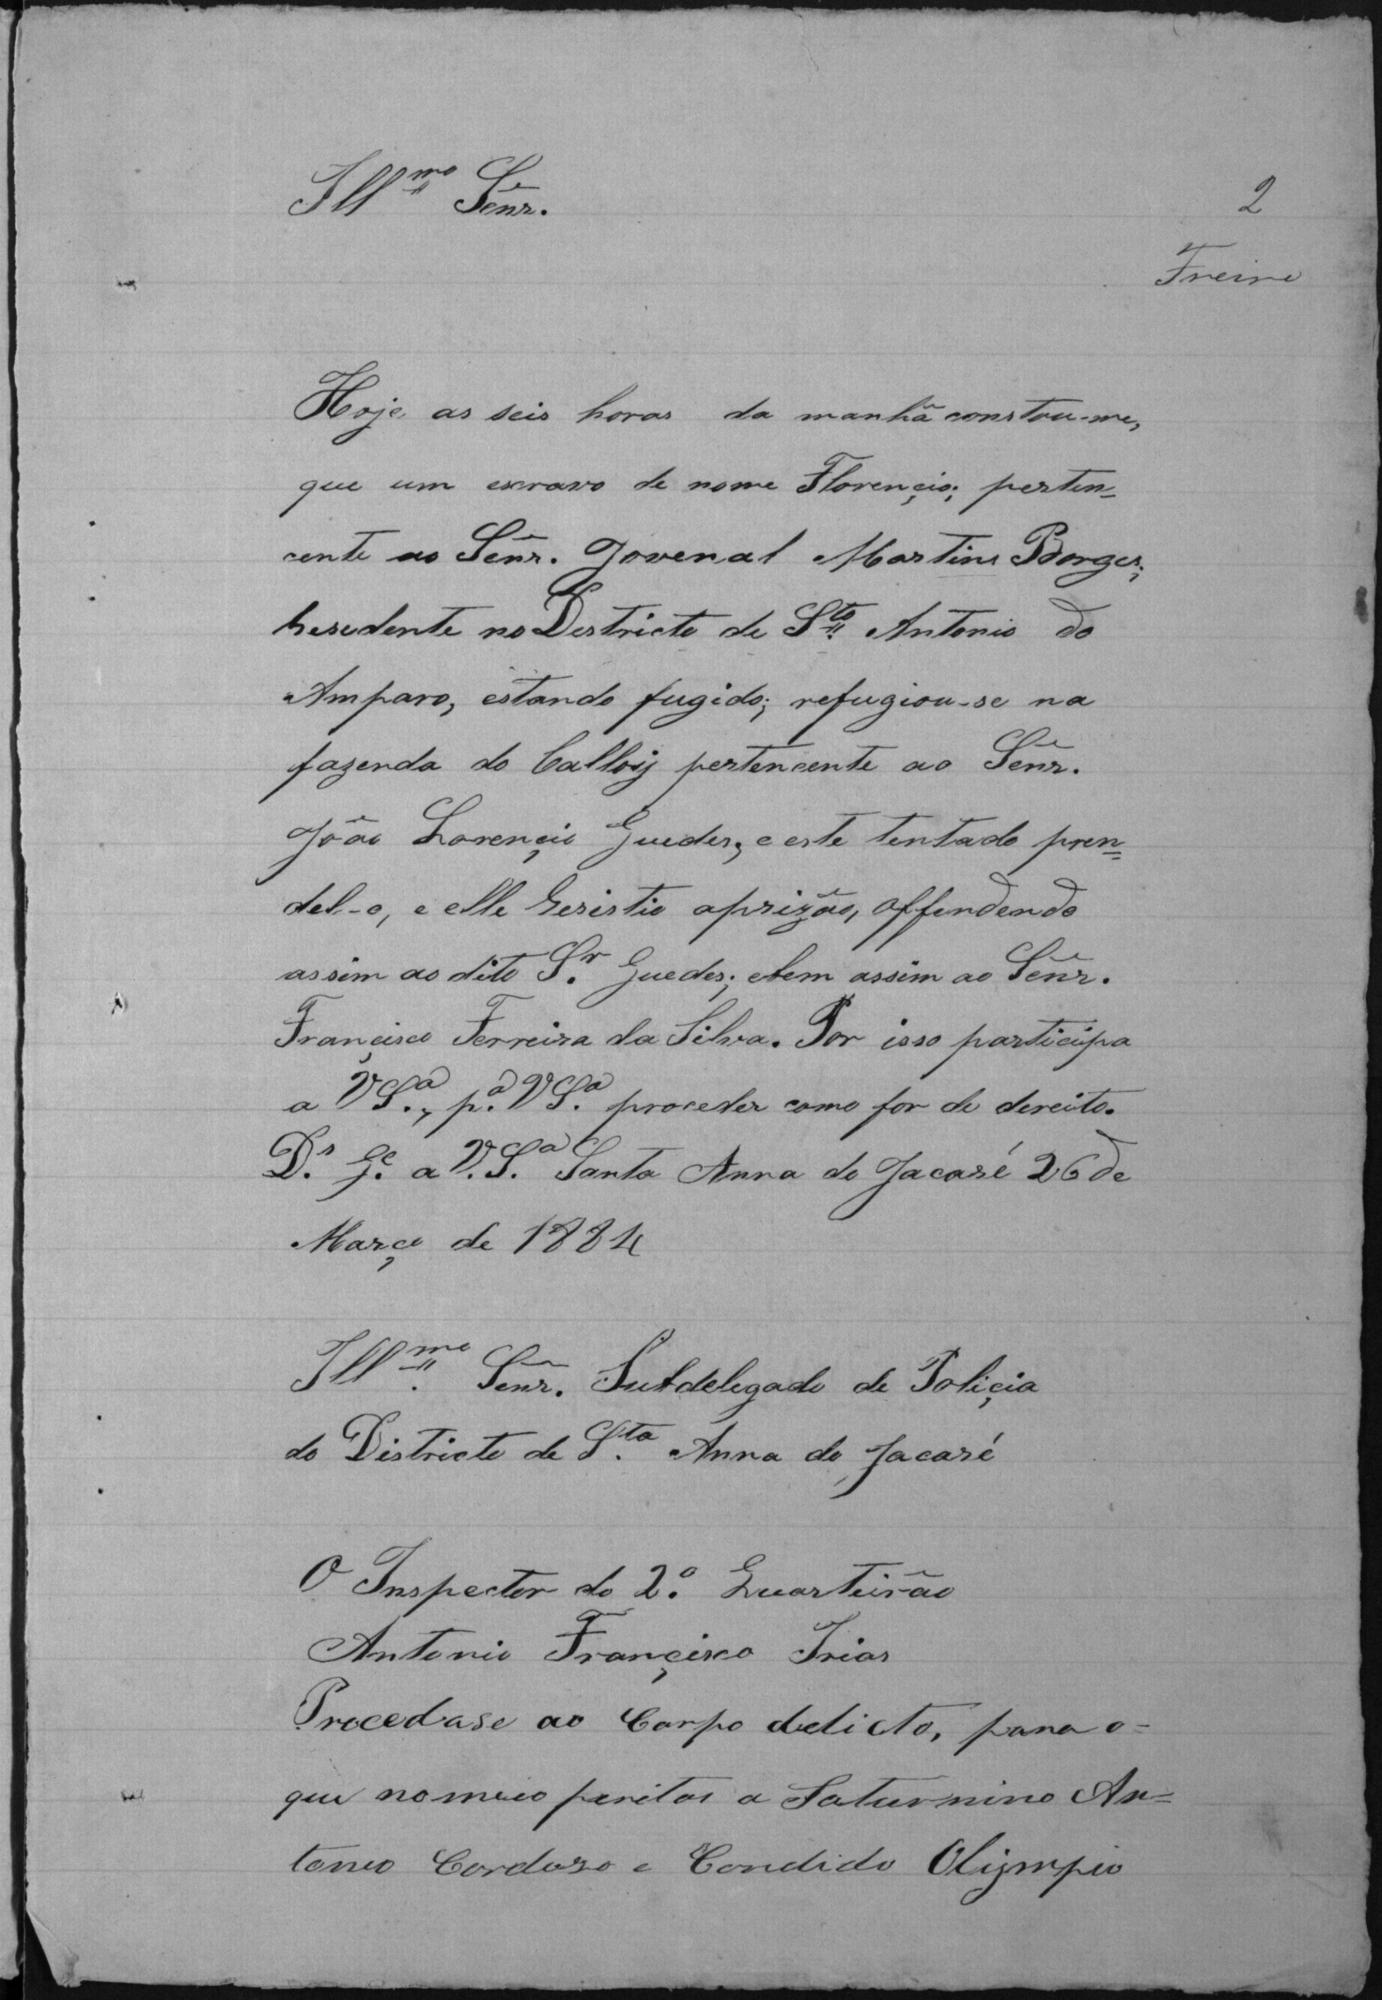 Illmo Senr.
2
Freire
Hoje as seis horas da manhã constou-me,
que um escravo de nome Florençio; perten-
cente ao Senr. Jovenal Martins Borges;
Resedente no Destricto de Sto Antonio do
Amparo, estando fugido; refugiou-se na
fazenda do pertencente ao Senr.
João Lorençio Guedes, e este tentado pren=
del-o, e elle Resistio aprizão, offendendo
assim ao dito Sr. Guedes; ebem assim ao Senr.
Françisco Ferreira da Silva. Por isso participa
a VSa., pa. VSa. proceder como for de dereito.
Ds. Ge. a V.Sa Santa Anna do Jacaré 26 de
Março de 1884
Illmo. Senr. Subdelegado de Poliçia
do Districto de Sta. Anna do Jacaré
O Inspector do 2.o Quarteirão
Antonio Françisco Irias
Procedase ao Corpo delicto, para o-
que nomeio peritos a Saturnino An=
tonio Cardozo e Candido Olijmpio